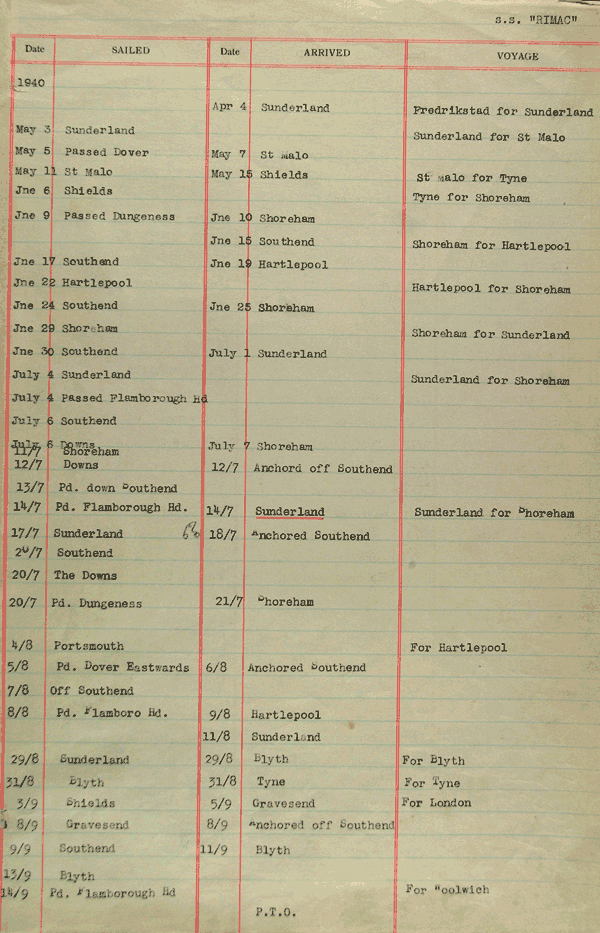 S.S. "RIMAC"
Date SAILED Date ARRIVED VOYAGE
1940
Apr 4 Sunderland Fredrikstad for Sunderland
May 3 Sunderland Sunderland for St Malo
May 5 Passed Dover May 7 St Malo
May 11 St Malo May 15 Shields St Malo for Tyne
Jne 6 Shields Tyne for Shoreham
Jne 9 Passed Dungeness Jne 10 Shoreham
Jne 15 Southend Shoreham for Hartlepool
Jne 17 Southend Jne 19 Hartlepool
Jne 22 Hartlepool Hartlepool for Shoreham
Jne 24 Southend Jne 25 Shoreham
Jne 29 Shoreham Shoreham for Sunderland
Jne 30 Southend July 1 Sunderland
July 4 Sunderland Sunderland for Shoreham
July 4 Passed Flamborough Hd
July 6 Southend
July 6 Downs July 7 Shoreham
11/7 Shoreham
12/7 Downs 12/7 Anchord off Southend
13/7 Pd. down Southend
14/7 Pd. Flamborough Hd. 14/7 Sunderland Sunderland for Shoreham
17/7 Sunderland 18/7 Anchored Southend
20/7 Southend
20/7 The Downs
20/7 Pd. Dungeness 21/7 Shoreham
4/8 Portsmouth For Hartlepool
5/8 Pd. Dover Eastwards 6/8 Anchored Southend
7/8 Off Southend
8/8 Pd. Flamboro Hd. 9/8 Hartlepool
11/8 Sunderland
29/8 Sunderland 29/8 Blyth For Blyth
31/8 Blyth 31/8 Tyne For Tyne
3/9 Shields 5/9 Gravesend For London
8/9 Gravesend 8/9 Anchored off Southend
9/9 Southend 11/9 Blyth
13/9 Blyth
14/9 Pd. Flamborough Hd For Woolwich
P.T.O.